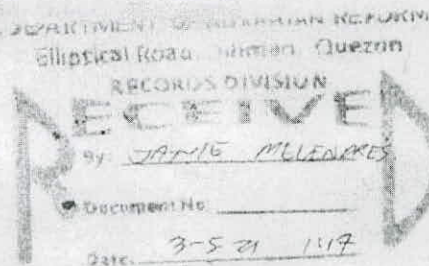 DEPARTMENT OF AGRARIAN REFORM
Elliptical Road, Diliman, Quezon
RECORDS DIVISION
RECEIVED
By: JAMIE MELENDRES
Document No
Date: 3-5-21 1:17